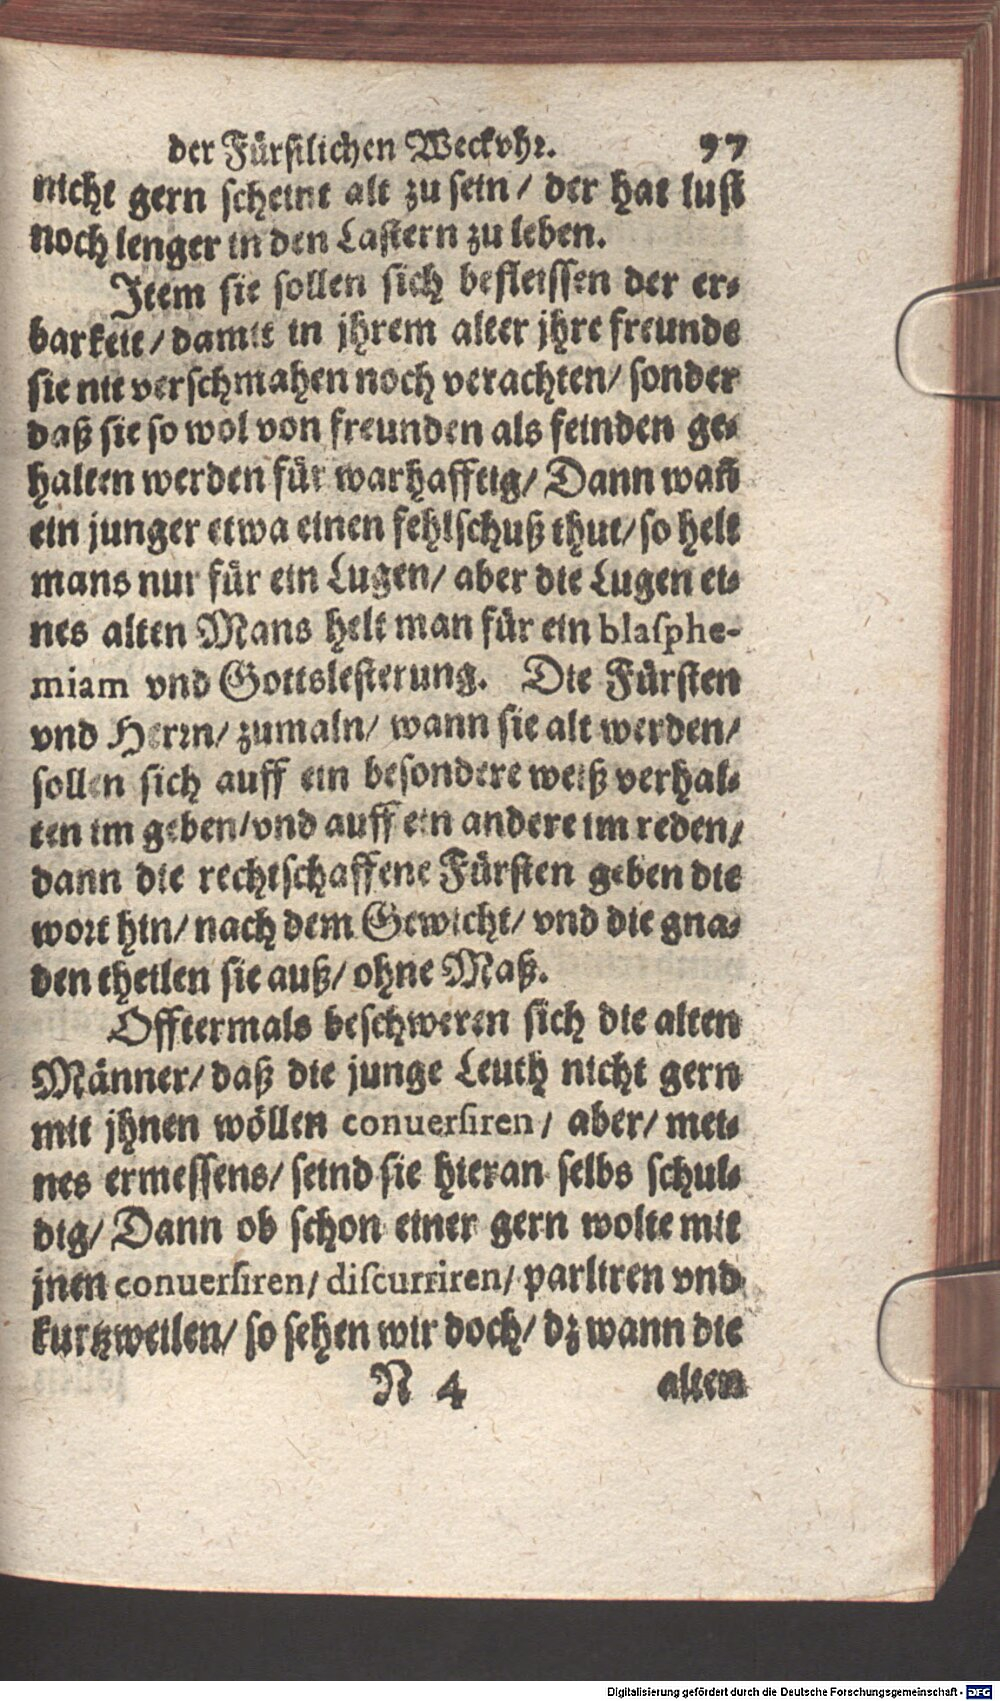 der Fürstlichen Weckvhr. 97
nicht gern scheint alt zu sein/ der hat lust
noch lenger in den Lastern zu leben.
Item sie sollen sich befleissen der er-
barkeit/ damit in jhrem alter jhre freunde
sie nit verschmahen noch verachten/ sonder
daß sie so wol von freunden als feinden ge-
halten werden für warhafftig/ Dann wañ
ein junger etwa einen fehlschuß thut/ so helt
mans nur für ein Lugen/ aber die Lugen ei-
nes alten Mans helt man für ein blasphe-
miam vnd Gottslesterung. Die Fürsten
vnd Herrn/ zumaln/ wann sie alt werden/
sollen sich auff ein besondere weiß verhal-
ten im geben/ vnd auff ein andere im reden/
dann die rechtschaffene Fürsten geben die
wort hin/ nach dem Gewicht/ vnd die gna-
den theilen sie auß/ ohne Maß.
Offtermals beschweren sich die alten
Männer/ daß die junge Leuth nicht gern
mit jhnen wöllen conuersiren/ aber/ mei-
nes ermessens/ seind sie hieran selbs schul-
dig/ Dann ob schon einer gern wolte mit
jnen conuersiren/ discurriren/ parliren vnd
kurtzweilen/ so sehen wir doch/ dz wann die
N 4 alten
Digitalisierung gefördert durch die Deutsche Forschungsgemeinschaft - DFG